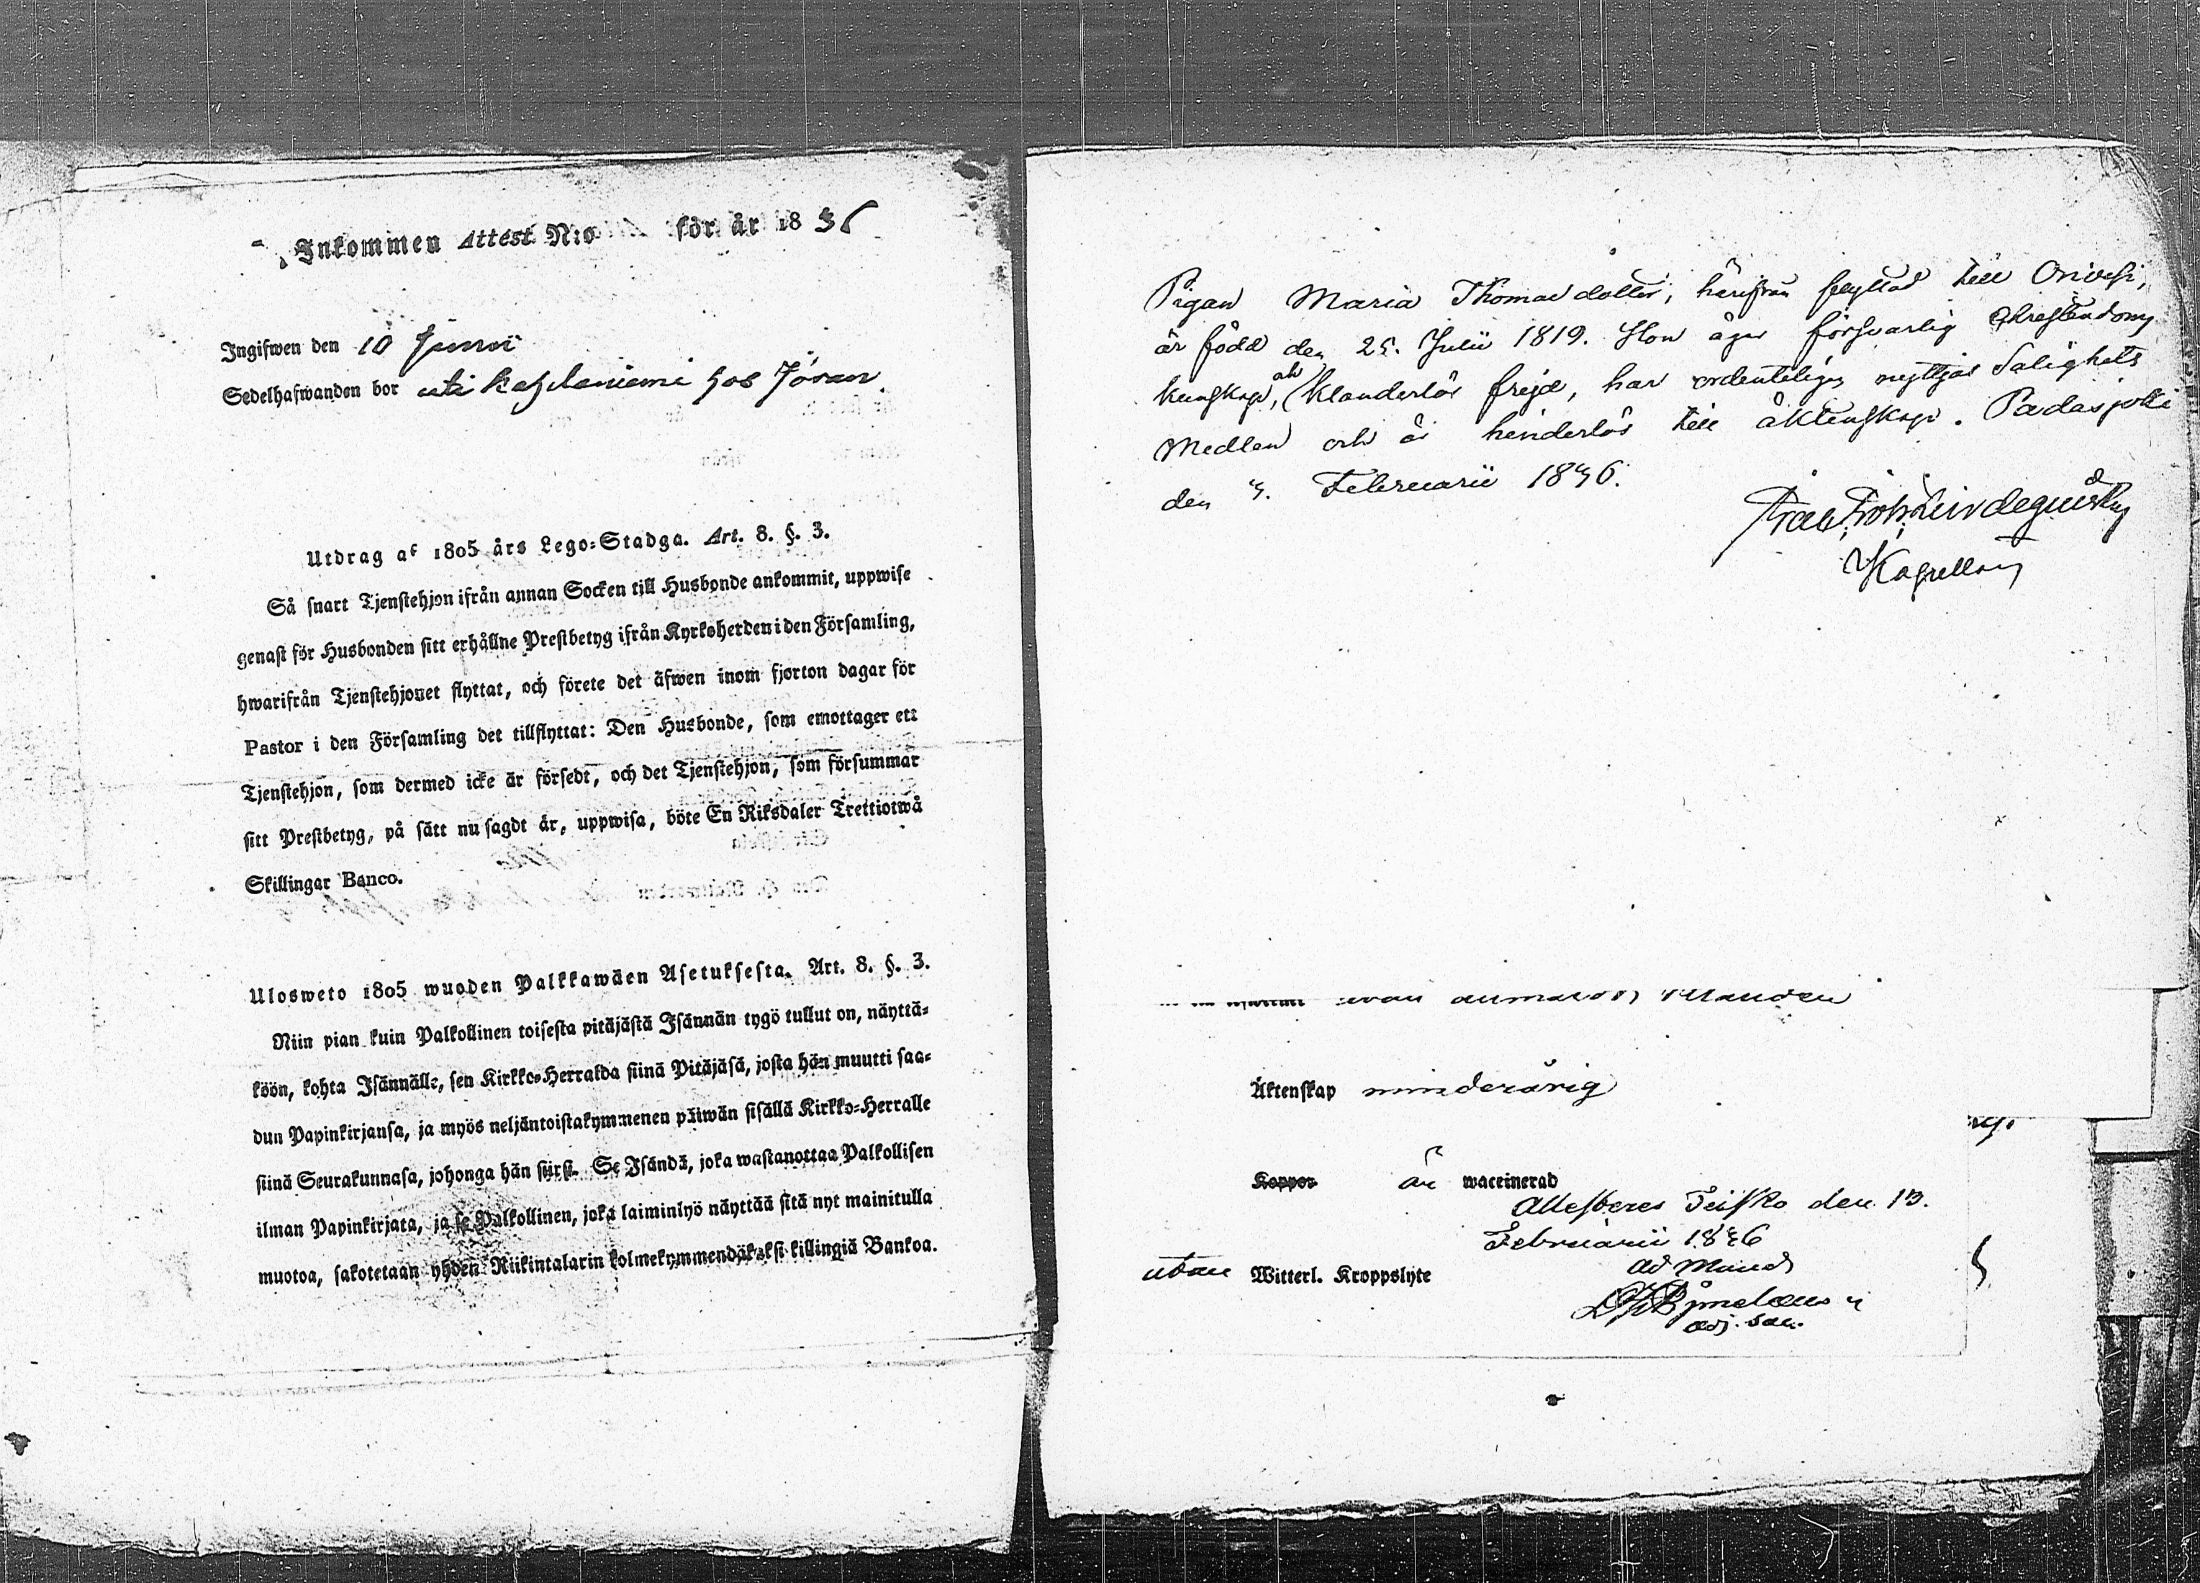 Inkommen Attest N:o för år 1836
Ingifwen den 10 Junii
Sedelhafwanden bor uti Kapilaniemi hos Jöran
Utdrag af 1805 års Lego-Stadga. Art. 8. §. 3.
Så snart Tjenstehjon ifrån annan Socken till Husbonde ankommit, uppwise
genast för Husbonden sitt erhållne Prestbetyg ifrån Kyrkoherden i den Församling,
hwarifrån Tjenstehjonet flyttat, och förete det äfwen inom fjorton dagar för
Pastor i den Församling det tillflyttat: Den Husbonde, som emottager ett
Tjenstehjon, som dermed icke är försedt, och det Tjenstehjon, som försummar
sitt Prestbetyg, på sätt nu sagdt är, uppwisa, böte En Riksdaler Trettiotwå
Skillingar Banco.
Ulosweto 1805 wuoden Palkkawäen Asetuksesta. Art. 8. §. 3.
Niin pian kuin Palkollinen toisesta pitäjästä Isännän tygö tullut on, näyttä-
köön, kohta Isännälle, sen Kirkko-Herralda siinä Pitäjäsä, josta hän muutti saa-
dun Papinkirjansa, ja myös neljäntoistakymmenen päiwän sisällä Kirkko-Herralle
siinä Seurakunnasa, johonga hän siirsi. Se Isändä, joka wastanottaa Palkollisen
ilman Papinkirjata, ja se Palkollinen, joka laiminlyö näyttää sitä nyt mainitulla
muotoa, sakotetaan yhden Riikintalarin kolmekymmendäkaksi killingiä Bankoa.
Pigan Maria Thomasdotter, härifrån flyttad till Orivesi,
är född den 25. Julii 1819. Hon äger försvarlig Christendoms
kunskap, och klanderlös frejd, har ordenteligen nyttjat Salighets
Medlen och är hinderlös till äktenskap. Padasjoki
den 4. Februarii 1846.
Kapellan
Äktenskap minderårig
Koppor är waccinerad
Attesteres Teisko den 13.
Februarii 1846
utan Witterl. Kroppslyte
ad Mand
adj. Sac.